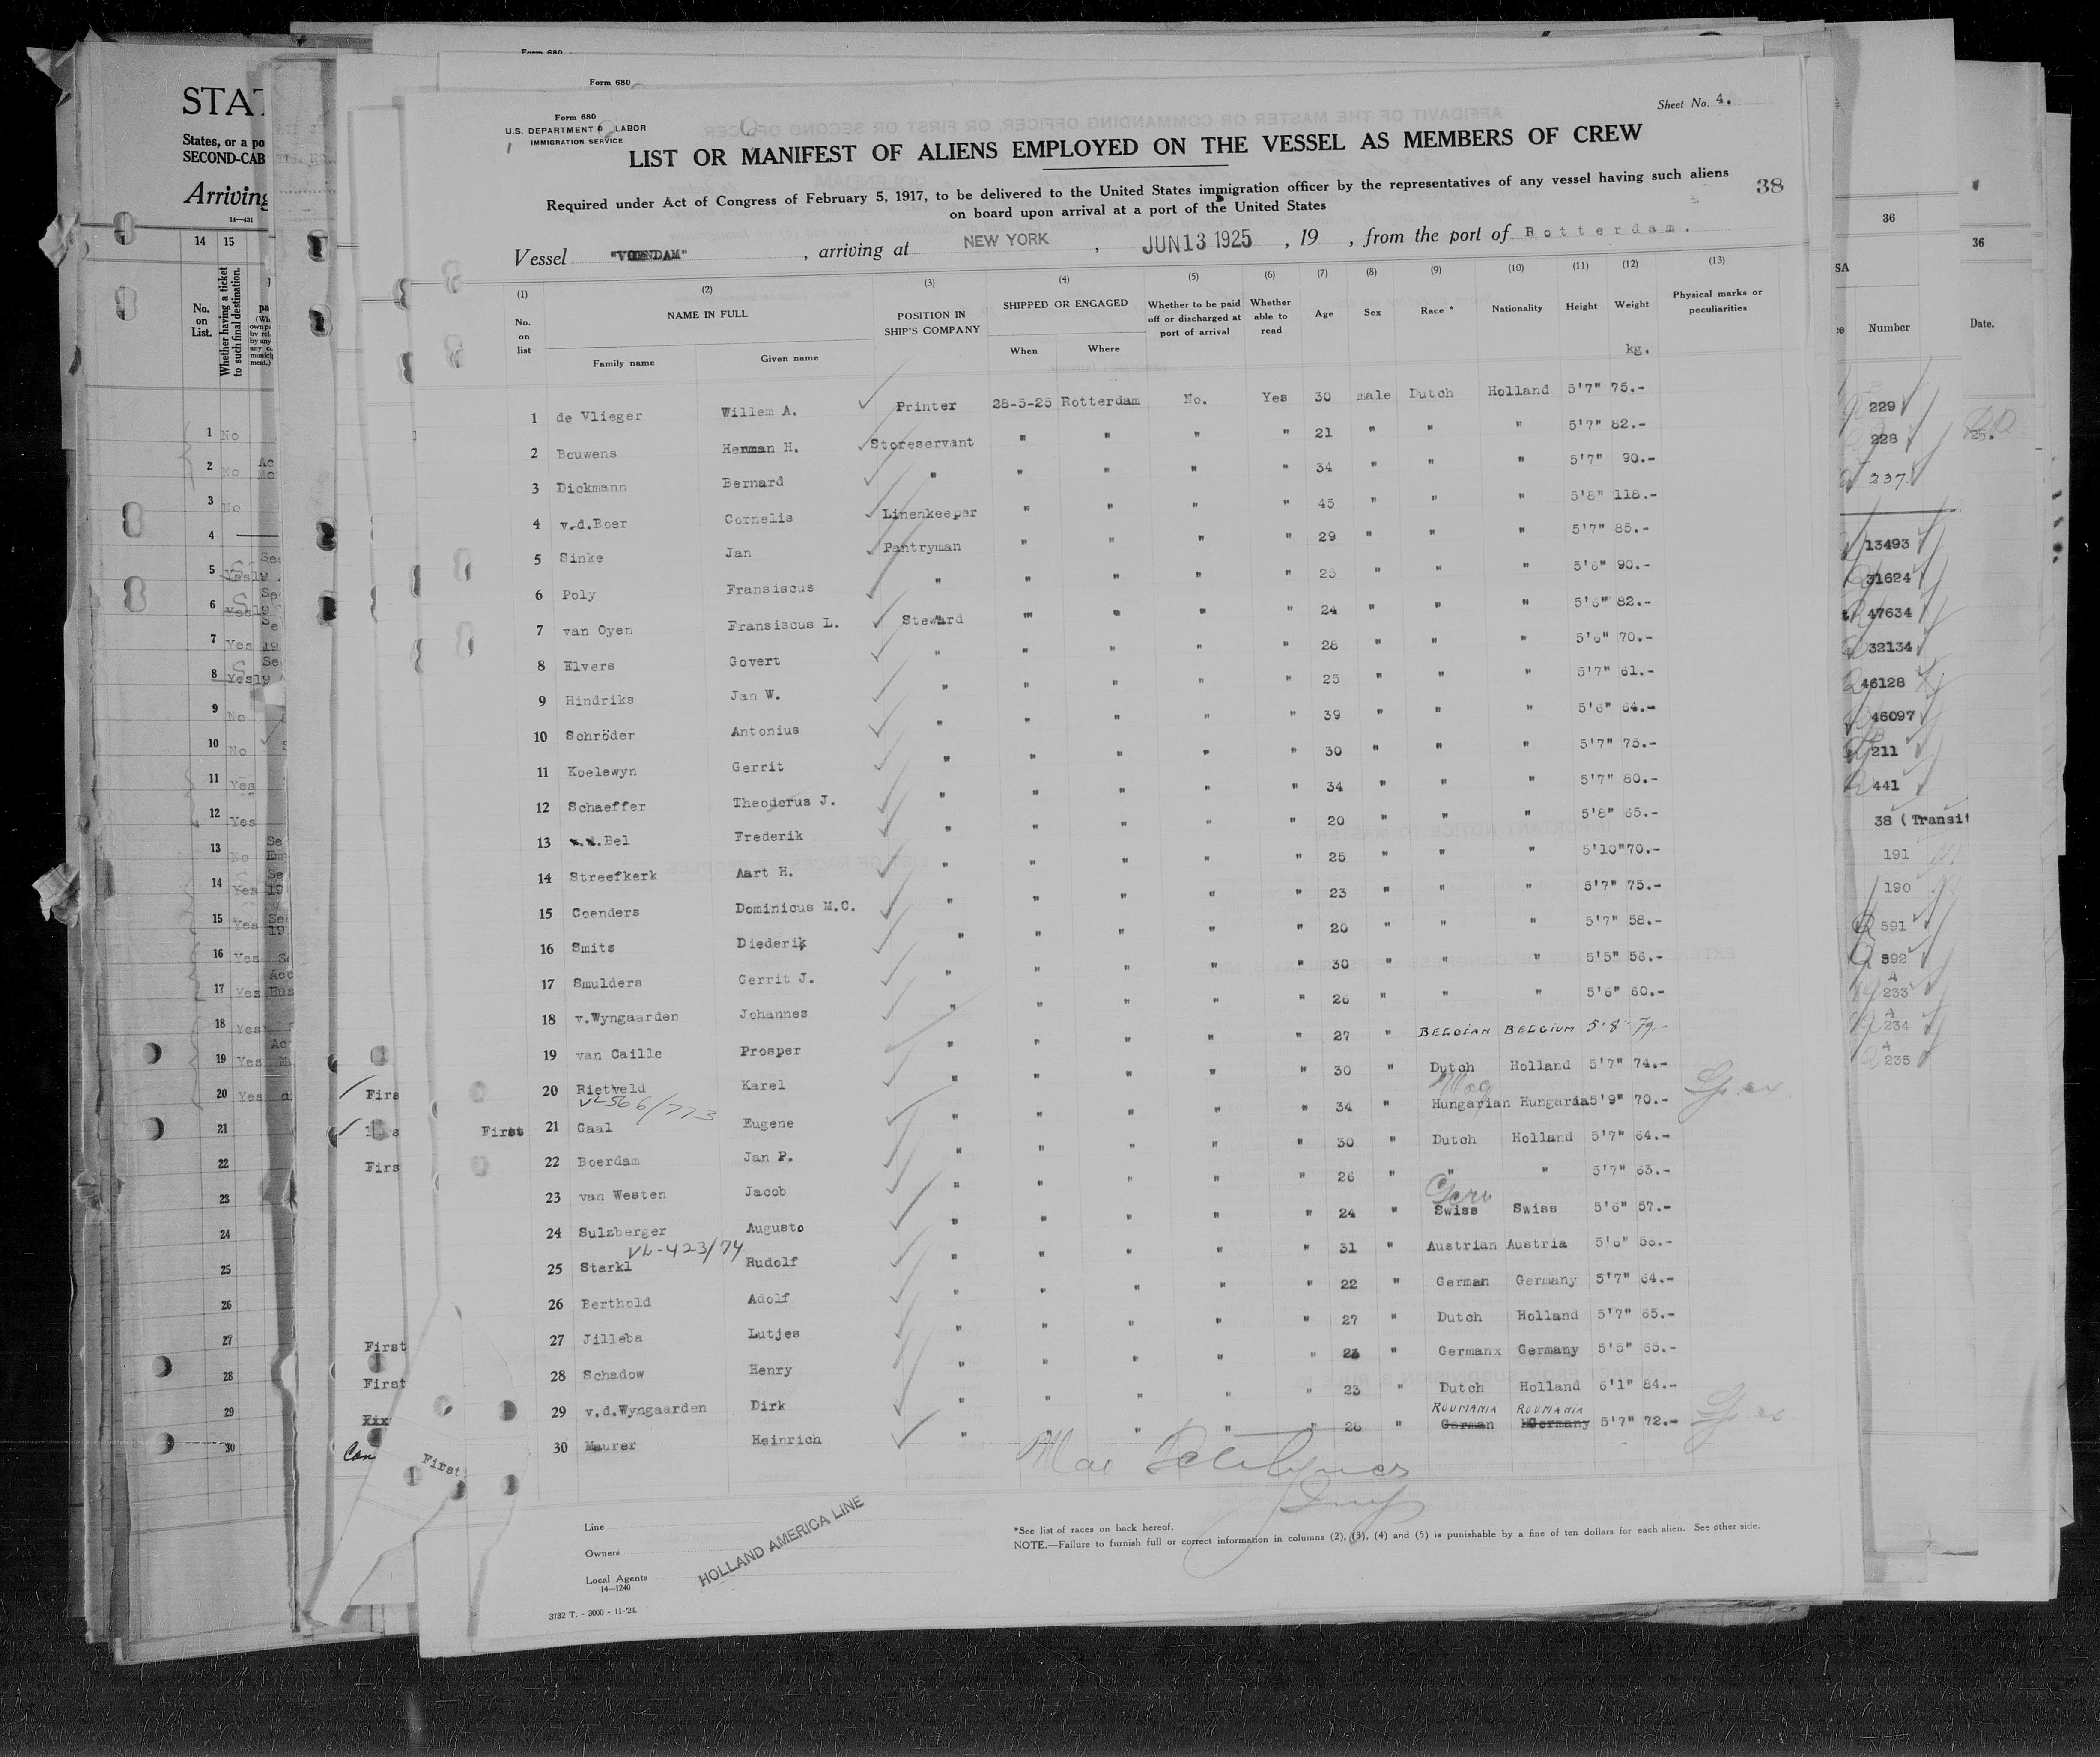 Form 680
Form 680
Form 680
U.S. DEPARTMENT O LABOR
IMMIGRATION SERVICE
Sheet No. 4.
LIST OR MANIFEST OF ALIENS EMPLOYED ON THE VESSEL AS MEMBERS OF CREW
Required under Act of Congress of February 5, 1917, to be delivered to the United States immigration officer by the representatives of any vessel having such aliens
on board upon arrival at a port of the United States
38
Vessel , arriving at NEW YORK , JUN 13 1925 , 19 , from the port of Rotterdam.
(1) (2) (3) (4) (5) (6) (7) (8) (9) (10) (11) (12) (13)
No. on list NAME IN FULL Family name Given name POSITION IN SHIP'S COMPANY SHIPPED OR ENGAGED When Where Whether to be paid off or discharged at port of arrival Whether able to read Age Sex Race * Nationality Height Weight kg. Physical marks or peculiarities
1 de Vlieger Willem A. Printer 28-5-25 Rotterdam No. Yes 30 male Dutch Holland 5'7" 75.-
2 Bouwens Herman H. Storeservant " " " " 21 " " " 5'7" 82.-
3 Dickmann Bernard " " " " " 34 " " " 5'7" 90.-
4 v.d.Boer Cornelis Linenkeeper " " " " 45 " " " 5'8" 118.-
5 Sinke Jan Pantryman " " " " 29 " " " 5'7" 85.-
6 Poly Fransiscus " " " " " 25 " " " 5'6" 90.-
7 van Oyen Fransiscus L. Steward " " " " 24 " " " 5'6" 82.-
8 Elvers Govert " " " " " 28 " " " 5'6" 70.-
9 Hindriks Jan W. " " " " " 25 " " " 5'7" 61.-
10 Schröder Antonius " " " " " 39 " " " 5'6" 64.-
11 Koelewyn Gerrit " " " " " 30 " " " 5'7" 75.-
12 Schaeffer Theodorus J. " " " " " 34 " " " 5'7" 80.-
13 Bel Frederik " " " " " 20 " " " 5'8" 65.-
14 Streefkerk Aart H. " " " " " 25 " " " 5'10" 70.-
15 Coenders Dominicus M.C. " " " " " 23 " " " 5'7" 75.-
16 Smits Diederik " " " " " 20 " " " 5'7" 58.-
17 Smulders Gerrit J. " " " " " 30 " " " 5'5" 56.-
18 v.Wyngaarden Johannes " " " " " 26 " " " 5'6" 60.-
19 van Caille Prosper " " " " " 27 " BELGIAN BELGIUM 5'8" 79.-
20 Rietveld Karel " " " " " 30 " Dutch Holland 5'7" 74.-
VL 566/773 Mag
First 21 Gaal Eugene " " " " " 34 " Hungarian Hungaria 5'9" 70.-
22 Boerdam Jan P. " " " " " 30 " Dutch Holland 5'7" 64.-
23 van Westen Jacob " " " " " 26 " " " 5'7" 63.-
24 Sulzberger Augusto " " " " " 24 " Swiss Swiss 5'6" 57.-
VL-423/74
25 Starkl Rudolf " " " " " 31 " Austrian Austria 5'6" 56.-
26 Berthold Adolf " " " " " 22 " German Germany 5'7" 64.-
27 Jilleba Lutjes " " " " " 27 " Dutch Holland 5'7" 65.-
28 Schadow Henry " " " " " " German Germany 5'5" 65.-
29 v.d.Wyngaarden Dirk " " " " " 23 " Dutch Holland 6'1" 84.-
ROUMANIA ROUMANIA
30 Maurer Heinrich " " " " " 28 " German Germany 5'7" 72.-
Line
Owners
Local Agents
14—1240
HOLLAND AMERICA LINE
3732 T. - 3000 - 11-'24.
*See list of races on back hereof.
NOTE.—Failure to furnish full or correct information in columns (2), (3), (4) and (5) is punishable by a fine of ten dollars for each alien. See other side.
STAT
States, or a po
SECOND-CAB
Arriving
14—431
14 15
No. on List.
Whether having a ticket to such final destination.
1 No
2 No
3 No
4
5 Yes
6 Yes
7 Yes 19
8 Yes
9 No
10 No
11 Yes
12 Yes
13 No
14 Yes 19
15 Yes 19
16 Yes
17 Yes Hus
18 Yes
19 Yes
20 Yes
21
22
23
24
25
26
27
28
29
30
Firs
Firs
First
First
Can
First
36
36
Number
Date.
229
228
237
13493
31624
47634
32134
46128
46097
211
441
38 (Transit
191
190
591
592
233
234
235